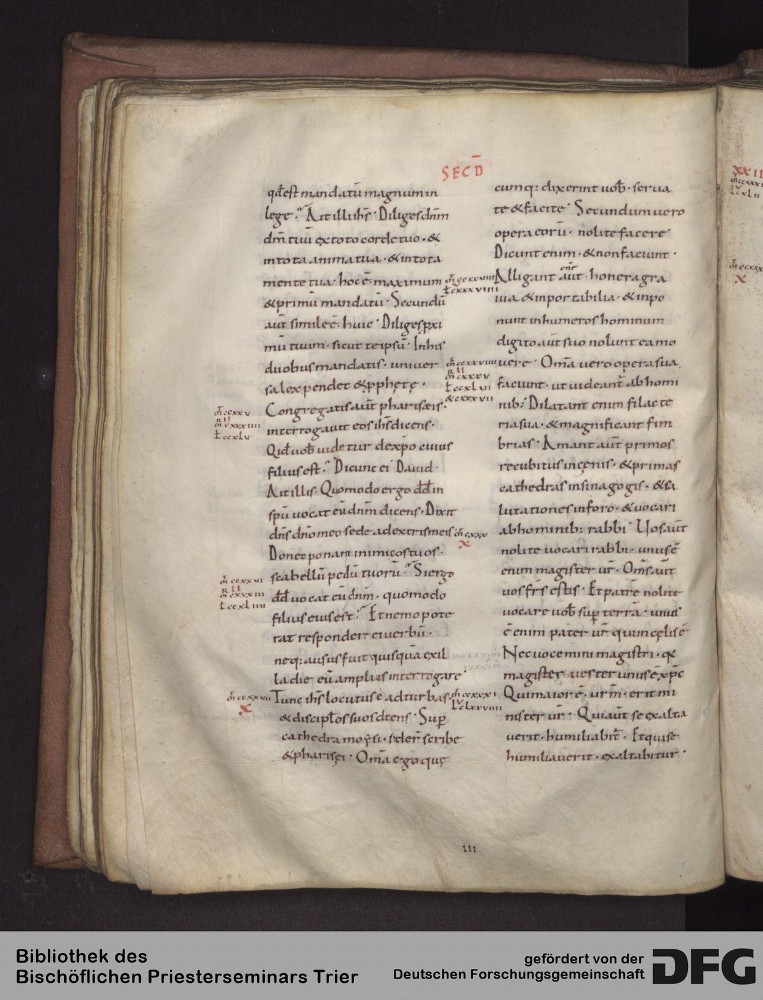 SECD̄
qd̄ est mandatū magnum in
lege·? Ait illi ihs̄· Diliges dn̄m
dm̄ tuū ex toto corde tuo· &
in tota anima tua· & in tota
mente tua· hoc ē maximum
& primū mandatū· Secundū
aut̄ simile ē huic· Diliges p̄xi
mū tuum· sicut te ipsū· In his
duobus mandatis· univer
sa lex pendet & pphetę·
Congregatis aut̄ pharisęis·
interrogavit eos ihs̄ dicens·
Qid vob̄ videtur de xp̄o cuius
filius est·? Dicunt ei David·
Ait illis Quomodo ergo dd̄ in
spū vocat eū dn̄m dicens· Dixit
dn̄s dn̄o meo sede a dextris meis
Donec ponam inimicos tuos·
scabellū pedū tuorū·? Si ergo
dd̄ vocat eū dn̄m· quomodo
filius eius est·? Et nemo pote
rat respondere ei verbū·
neq: ausus fuit quisquā ex il
la die eū amplius interrogare·
Tunc ihs̄ locutus ē ad turbas
& discipl̄os suos dicens· Sup̄
cathedra moysi· seder̄ scribe
& pharisęi· Om̄a ergo quę
cumq: dixerint vob̄· serva
te & facite· Secundum vero
opera eorū· nolite facere
Dicunt enim· & non faciunt·
Alligant aut̄ honera gra
via & inportabilia· & inpo
nunt in humeros hominum
digito aut̄ suo nolunt ea mo
vere· Om̄a vero opera sua
faciunt· ut videant̄ ab homi
nib: Dilatant enim filacte
ria sua· & magnificant fim
brias· Amant aut̄ primos
recubitus in cęnis· & primas
cathedras in sinagogis· & sa
lutationes in foro· & vocari
ab hominib: rabbi· Vos aut̄
nolite vocari rabbi· unus ē
enim magister vr̄· Om̄s aut̄
vos frs̄ estis· Et patrē nolite
vocare vob̄ sup̄ terrā· unus
ē enim pater vr̄ qui in cęlis ē
Nec vocemini magistri· q̄
magister vester unus ē xp̄c
Qui maior ē· vr̄m· erit mi
nister vr̄· Qui aut̄ se exalta
verit· humiliabit̄· Et qui se
humiliaverit· exaltabitur·
III
Bibliothek des
Bischöflichen Priesterseminars Trier
gefördert von der
Deutschen Forschungsgemeinschaft
DFG